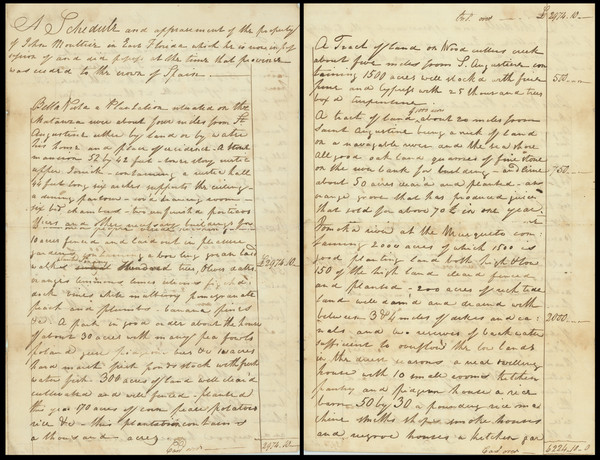 A Schedule and appraisement of the property
of John Moultrie in East Florida which he is now in poss
ession of and did posess at the time that province
was ceded to the crown of Spain
Bella Vista a Plantation situated on the
Matanza river about four miles from St
Augustine either by land or by water
his home and place of residence. A stone
mansion 52 by 42 feet - one story rustic
upper Ionick - containing a suite hall
long six arches supports the ceiling
a dining parlour - and drawing room -
six bed chambers - two unfinished porticos
10 acres fenced and laid out in pleasure
gardens a bowling green laid
walks trees Olives dates
oranges lemons limes citrons figs
vines white mulberry pomegranate
peach and plumbs - banana pines
&c - A park in good order about the house
of about 30 acres with many pea fowls
poland geese pidgeons bees &c 10 acres
land marsh fresh ponds stock with fresh
water fish 300 acres of land well cleard
cultivated and well fenced - planted
this year 170 acres of corn pease potatoes
rice &c - this plantation contains
a thousand acres
Card over
£2974.10
2974.10
Brt over £ 2974.10
A Tract of Land on Wood cutters creek
about five miles from St Augustine con
taining 1500 acres well stocked with fine
pine and cypress with 25 thousand trees
box'd turpentine
500
A tract of land about 20 miles from
Saint Augustine being a neck of land
on a navigable river and the sea shore
All good oak land quarries of fine stone
on the river bank for building - and lime
about 50 acres cleard and planted - an
orange grove that has produced juice
that sold for above 70£ in one year
750
at the Musqueto con
taining 2000 acres of which 1500 is
good planting land both high & low
150 of the high land cleard fenced
and planted - 200 acres of rich tide
land well damd and cleard with
between 3 & 4 miles of dikes and ca
nals and two reserves of back water
sufficient to overflow the low lands
in the driest seasons a neat dwelling
house with 10 small rooms kitchen
pantry and pidgeon house a rice
barn 50 by 30 a pounding rice ma
chine smiths shop smoke houses
and negroe houses a kitchen gar
2000
Card over
6224.10.0